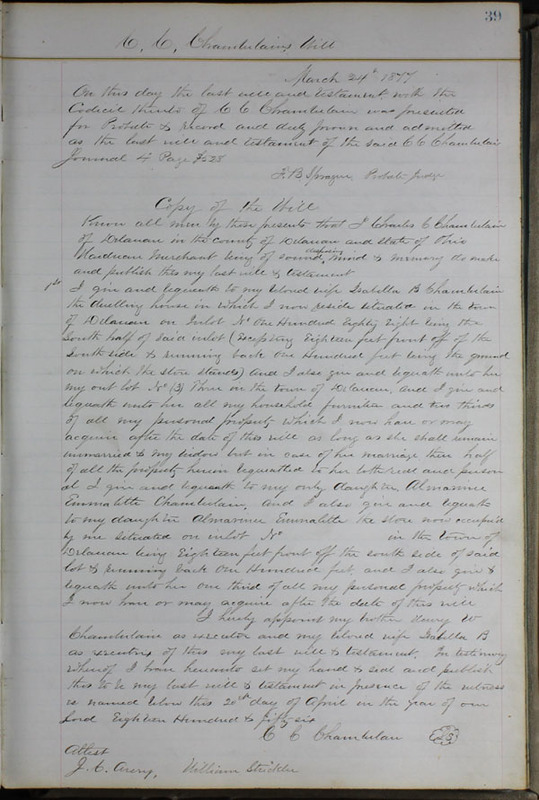 39
C. C. Chamberlains Will
March 24th 1877
On this day the last will and testament with the
Codicil thereto of C C Chamberlain was presented
for Probate & record and duly proven and admitted
as the last will and testament of the said C C Chamberlain
Journal 4 Page 528
F. B Sprague, Probate Judge
Copy of the Will
Know all men by these presents that I Charles C Chamberlain
of Delaware in the county of Delaware and State of Ohio
disposing
Hardware Merchant being of sound mind & memory do make
and publish this my last will & testament
1st
I give and bequeath to my beloved wife Isabella B Chamberlain
the dwelling house in which I now reside situated in the town
of Delaware on Inlot No One Hundred Eighty Eight being the
South half of said inlot (Excepting Eighteen feet front off of the
South side & running back One Hundred feet being the ground
on which the store stands) and I also give and bequeath unto her
my out lot No (3) Three in the town of Delaware. and I give and
bequeath unto her all my household furniture and two thirds
of all my personal property which I now have or may
acquire after the date of this will as long as she shall remain
unmarried & my widow but in case of her marriage then half
of all the property herein bequeathed to her both real and person
al I give and bequeath to my only daughter, Almarine
Emmalette Chamberlain, and I also give and bequeath
to my daughter Almarine Emmalette the store now occupied
by me situated on inlot No in the town of
Delaware being Eighteen feet front off the south side of said
lot & running back One Hundred feet and I also give &
bequeath unto her one third of all my personal property which
I now have or may acquire after the date of this will
I hereby appoint my brother W
Chamberlain as executor and my beloved wife Isabella B
as executrix of this my last will & testament, In testimony
whereof I have hereunto set my hand & seal and publish
this to be my last will & testament in presence of the witness
es named below this 20th day of April in the year of our
Lord Eighteen Hundred & fifty six
C C Chamberlain
Attest
J. C. Avery, William Strickler